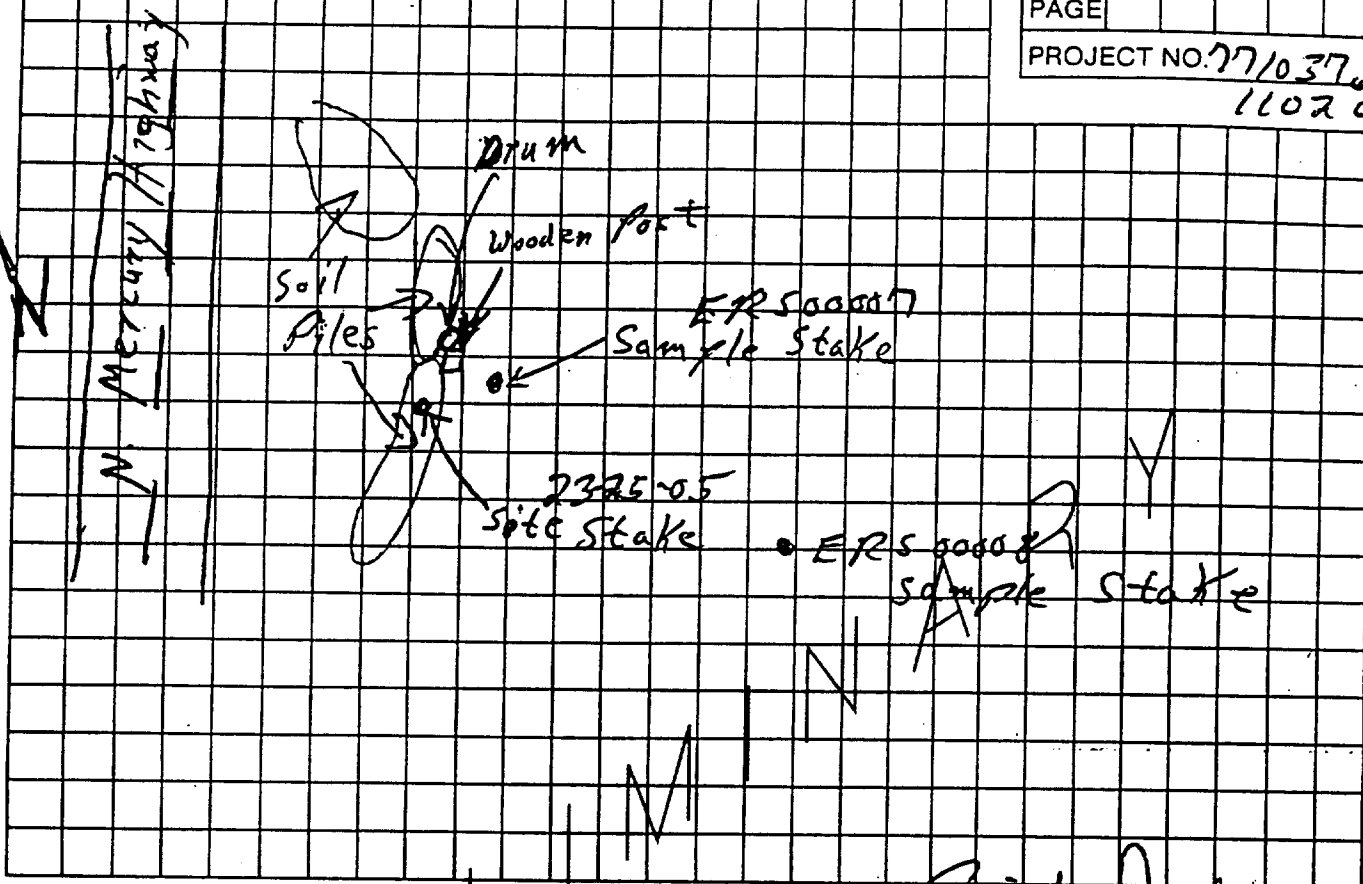 PAGE
PROJECT NO. 771037.
1102
N. Mercury Highway
N
Drum
Wooden Post
Soil
Piles
ERS00007
Sample Stake
23-25-05
Site Stake
ERS00008
Sample Stake